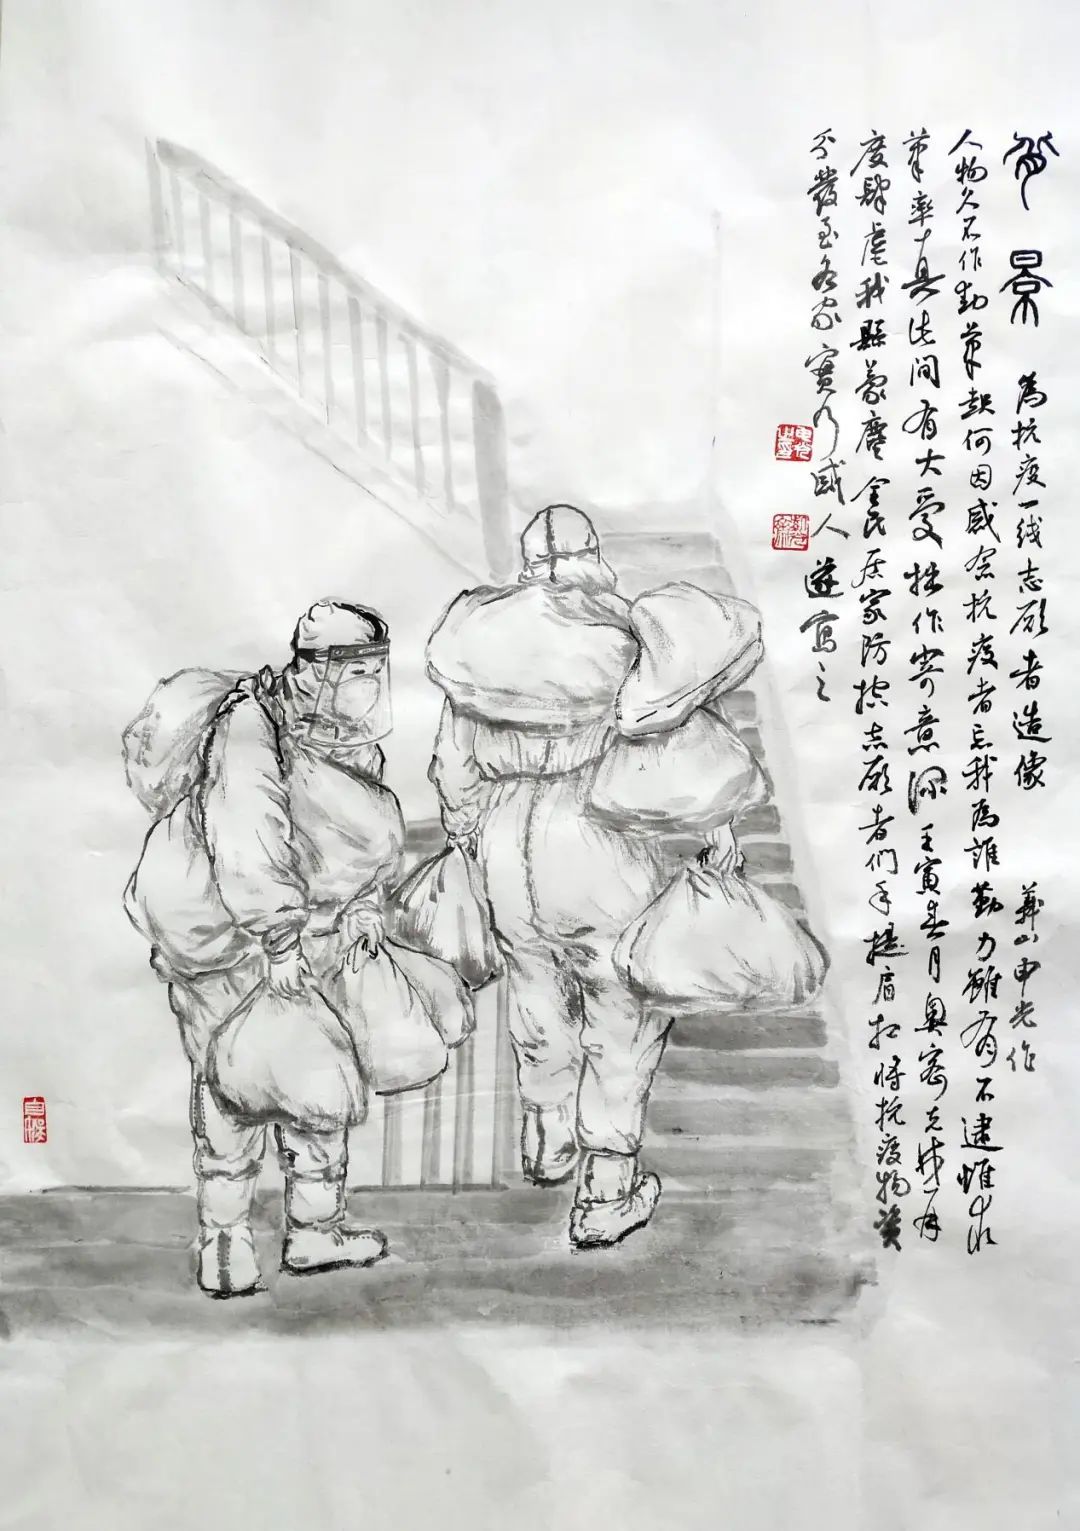 景 為抗疫一线志愿者造像 山申光作
人物久不作動筆起何因感念抗疫者忘我為誰勤力雖有不逮惟求
筆率真此间有大爱拙作寄意深 壬寅春月奥密克戎再
度肆虐我縣蒙塵全民居家防控志愿者们手提肩扛将抗疫物资
分發至各家實乃感人遂寫之